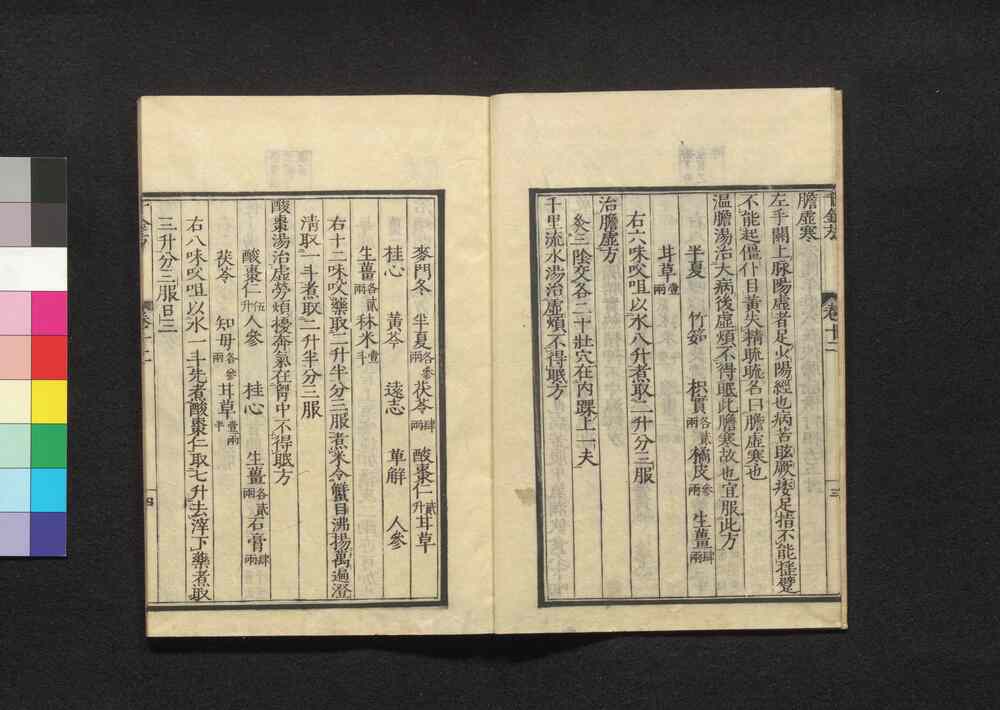 千金方 卷十二 三
膽虛寒
左手關上脉陽虛者足少陽經也病苦眩厥痿足指不能搖躄
不能起僵仆目黃失精𥇀𥇀名曰膽虛寒也
温膽湯治大病後虛煩不得眠此膽寒故也宜服此方
半夏 竹筎 枳實各貳兩 橘皮叁兩 生薑肆兩
甘草壹兩
右六味㕮咀以水八升煮取二升分三服
治膽虛方
灸三陰交各二十壯穴在內踝上一夫
千里流水湯治虛煩不得眠方
麥門冬 半夏各叁兩 茯苓肆兩 酸棗仁貳升 甘草
桂心 黃芩 遠志 萆解 人參
生薑各貳兩 秫米壹斗
右十二味㕮咀以千里流水
清取一斗煮藥取二升半分三服
酸棗湯治虛勞煩擾奔氣在胷中不得眠方
酸棗仁伍升 人參 桂心 生薑各貳兩 石膏肆兩
茯苓 知母各叁兩 甘草壹兩半
右八味㕮咀以水一斗先煮酸棗仁取七升去滓下藥煮取
三升分三服日三
千金方 卷十二